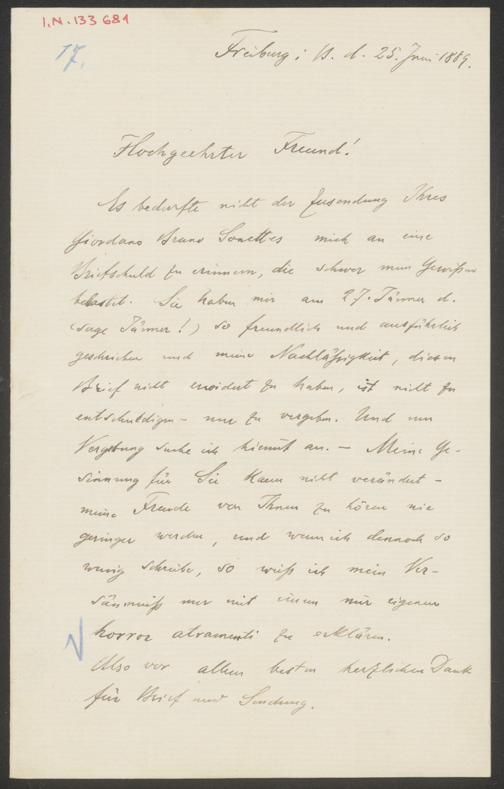 I.N. 133 681
17.
Freiburg i/B. d. 25. Juni 1889.
Hochgeehrter Freund!
Es bedurfte nicht der Zusendung Ihres
Giordano Bruno Sonettes mich an eine
Briefschuld zu erinnern, die schwer mein Gewissen
belastet. Sie haben mir am 27. Jänner d.
(sage Jänner!) so freundlich und ausführlich
geschrieben und meine Nachläßigkeit, diesen
Brief nicht erwidert zu haben, ist nicht zu
entschuldigen – nur zu vergeben. Und um
Vergebung suche ich hiemit an. – Meine Ge-
sinnung für Sie kann nicht verändert –
meine Freude von Ihnen zu hören nie
geringer werden, und wenn ich dennoch so
wenig schreibe, so weiß ich mein Ver-
säumniß nur mit einem mir eigenen
horror atramenti zu erklären.
Also vor allem besten herzlichen Dank
für Brief und Sendung.